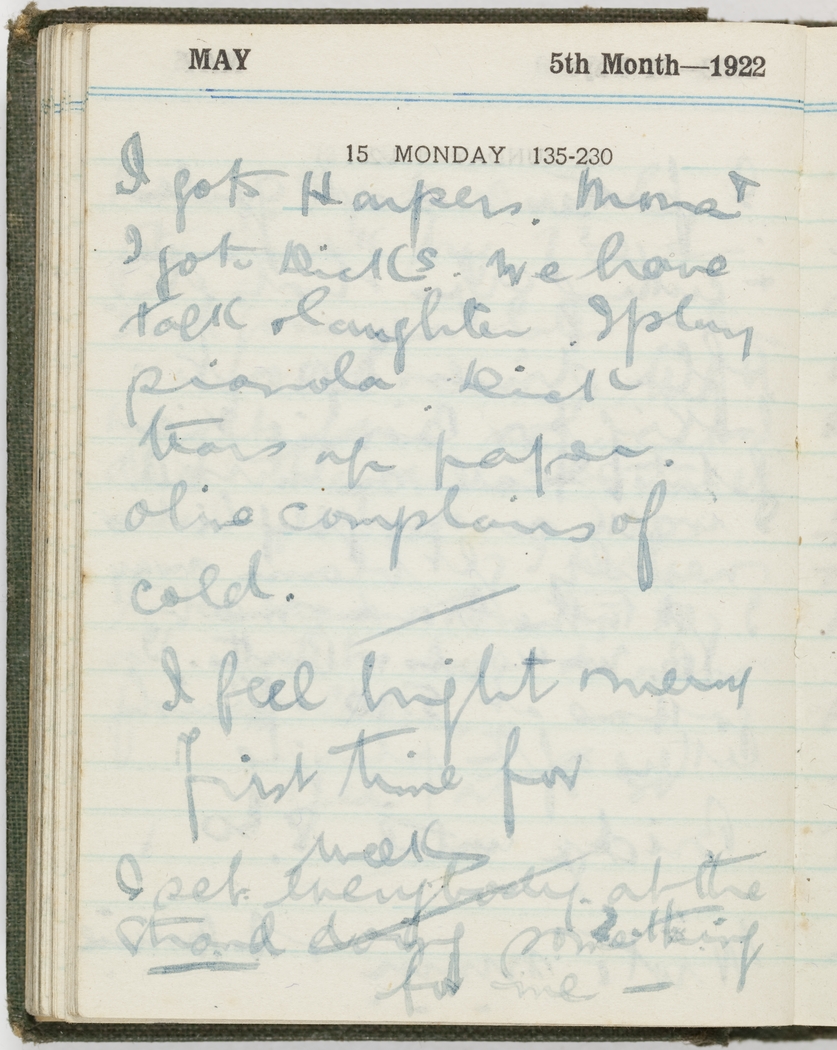 MAY 5th Month—1922
15 MONDAY 135-230
I got Harpers. Mona &
I got Dicks. We have
talk & laughter. I play
pianola. Dick
tears up paper.
Olive complains of
cold.
I feel bright & merry
First time for
weeks
I set everybody at the
Strand doing something
for me —